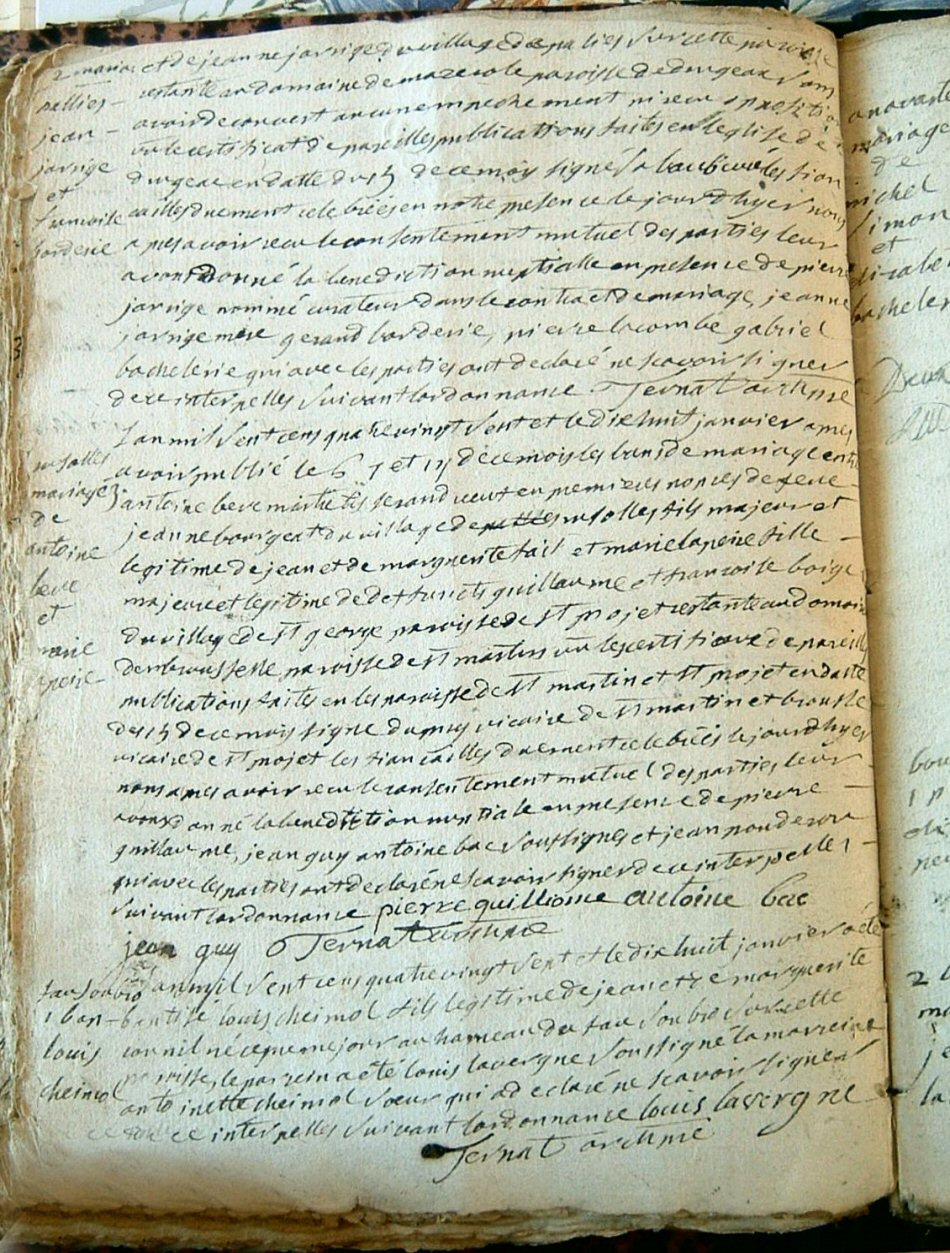 2 mariage
pallies
jean
jarrige
et
francoise
borderie
et de jeanne jarrige du village de pallies sur cette paroisse
restante au domaine de mazerole paroisse de durgeax sans
avoir decouvert aucun empechement ni receu opposition
vu le certificat de pareilles publications faites en leglise de
durgeax en datte du 15 de ce mois signé les fian
cailles duement celebrées en notre presence le jour dhyer nous
apres avoir receu le consentement mutuel des parties leur
avons donné la benediction nuptialle en presence de pierre
jarrige nommé curateur dans le contract de mariage, jeanne
jarrige mere gerand borderie, pierre lacombe gabriel
bachelerie qui avec les parties ont declaré ne scavoir signer
de ce interpelles suivant lordonnance Ternat archipre
mariage
de
antoine
beve
et
marie
lapeire
Lan mil sept cens quatre vingt sept et le dix huit janvier apres
avoir publié le 6 7 et 14 de ce mois les bans de mariage entre
antoine beve veuf en premieres nopces de feue
jeanne bourgeat du village de fils majeur et
legitime de jean et de marguerite fait et marie lapeire fille
majeure et legitime de deffuncts guillaume et francoise boige
du village de st george paroisse de st projet restante au domaine
de paroisse de st martin vu les certificats de pareilles
publications faites en les paroisse de st martin et st projet en datte
des 15 de ce mois signé dupuy vicaire de st martin et brousse
vicaire de st projet les fiancailles duement celebrées le jour dhyer
nous apres avoir receu le consentement mutuel des parties leur
avons donné la benediction nuptiale en presence de pierre
guillaume, jean guy antoine bac soussignes et jean
qui avec les parties ont declaré ne scavoir signer de ce interpelles
suivant lordonnance pierre quilliome antoine bac
jean guy Ternat archipre
fau soubro
1 ban
louis
cheimol
Lan mil sept cens quatre vingt sept et le dix huit janvier a été
baptisé louis cheimol fils legitime de jean et de marguerite
né ce meme jour au hameau du fau soubro sur cette
paroisse, le parrein a été louis lavergne soussigné la marreine
antoinette cheimol sœur qui a declaré ne scavoir signer
de ce interpelles suivant lordonnance louis lavergne
Ternat archipre
mariage
de
michel
simon
et